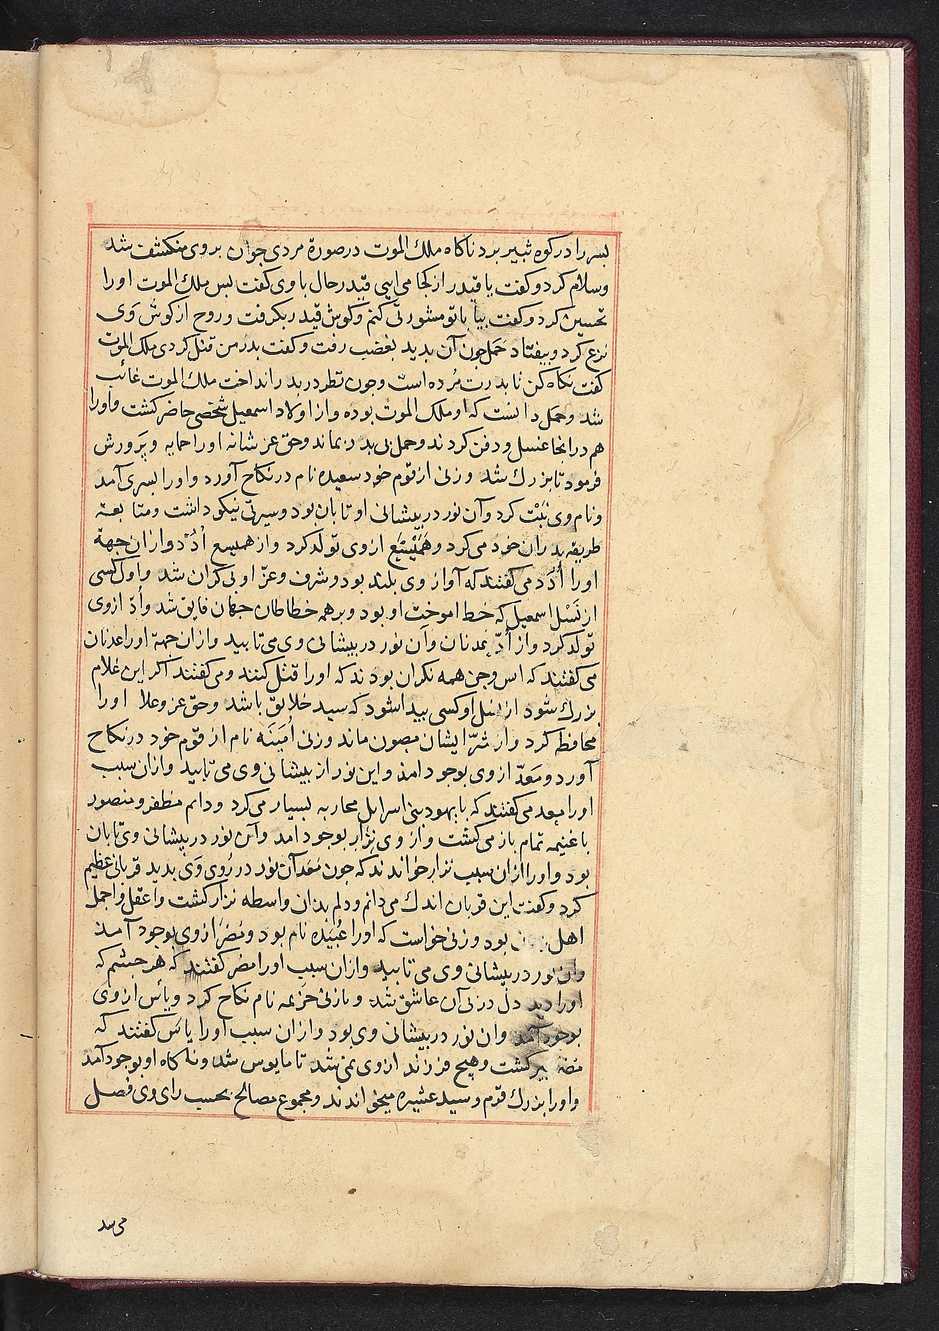 بسر را در کوه ثبیر برد ناکاه ملك الموت در صورة مردی جوان بروی منکشف شد
وسلام کرد و کفت یا قیدر از کجا می ایی قیدر حال باوی کفت بس ملك الموت اورا
تحسین کرد و کفت بیا با تو مشورتی کنم و کوش قیدر بکرفت و روح از کوش وی
نزع کرد و بیفتاد حمل چون آن بدید بغضب رفت و کفت بدر من قتل کردی ملك الموت
کفت نکاه کن تا بدرت مرده است و چون نظر در بدر انداخت ملك الموت غائب
شد و حمل دانست که او ملك الموت بوده و از اولاد اسمعیل شخصی حاضر کشت و اورا
هم در انجا غسل و دفن کردند و حمل بی بدر بماند و حق عز شانه اورا حمایه و پرورش
فرمود تا بزرك شد و زنی از قوم خود سعیده نام در نکاح آورد و اورا بسری آمد
و نام وی نبت کرد و آن نور در بیشانی او تابان بود و سیرتی نیکو داشت و متابعة
طریقه بدران خود می کرد و همیسع از وی تولد کرد و از همیسع ادد و ازان جهة
اورا ادد می کفتند که آواز وی بلند بود و شرف و عز او بی کران شد و اول کسی
از نسل اسمعیل که خط اموخت او بود و بر همه خطاطان جهان فایق شد و ادّ ازوی
تولد کرد و از ادّ عدنان و آن نور در بیشانی وی می تابید و ازان جهة اورا عدنان
می کفتند که انس و جن همه نکران بودند که اورا قتل کنند و می کفتند اکر این غلام
بزرك شود از نسل او کسی بیدا شود که سید خلایق باشد و حق عز و علا اورا
محافظه کرد و از شر ایشان مصون ماند و زنی امینه نام از قوم خود در نکاح
آورد و معدّ ازوی بوجود امد و این نور از بیشانی وی می تابید و ازان سبب
اورا معد می کفتند که با یهود بنی اسرایل محاربه بسیار می کرد و دائم مظفر و منصور
با غنیمه تمام باز می کشت و از وی نزار بوجود امد و آن نور در بیشانی وی تابان
بود و اورا ازان سبب نزار خواندند که چون معد آن نور در روی وی بدید قربانی عظیم
کرد و کفت این قربان اندك می دانم و دلم بدان واسطه نزار کشت و اعقل و اجمل
اهل بود و زنی خواست که اورا عبیده نام بود و مضر از وی بوجود آمد
و آن نور در بیشانی وی می تابید و ازان سبب اورا مضر کفتند که هر چشم که
اورا دید دل در بی آن عاشق شد و با زنی خزیمه نام نکاح کرد و یاس ازوی
بوجود آمد و ان نور در بیشانی وی بود و ازان سبب اورا یاس کفتند که
مضر بیر کشت و هیچ فرزند ازوی نمی شد تا مایوس شد و ناکاه او بوجود آمد
و اورا بزرك قوم و سید عشیره میخواندند و مجموع مصالح بحسب رای وی فصل
می شد